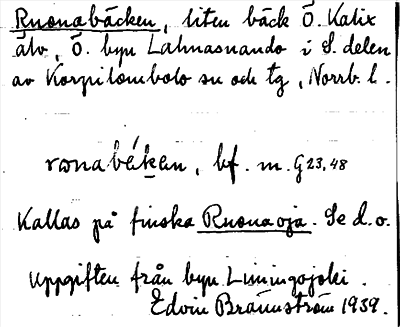 Ruonabäcken, liten bäck Ö. Kalix
älv, Ö. byn Lahnasuando i S. delen
av Korpilombolo sn och tg, Norrb. l.
bf. m. G 23,48
Kallas på finska Ruonaoja. Se d.o.
Uppgiften från byn Limingojoki.
Edvin Brännström 1939.